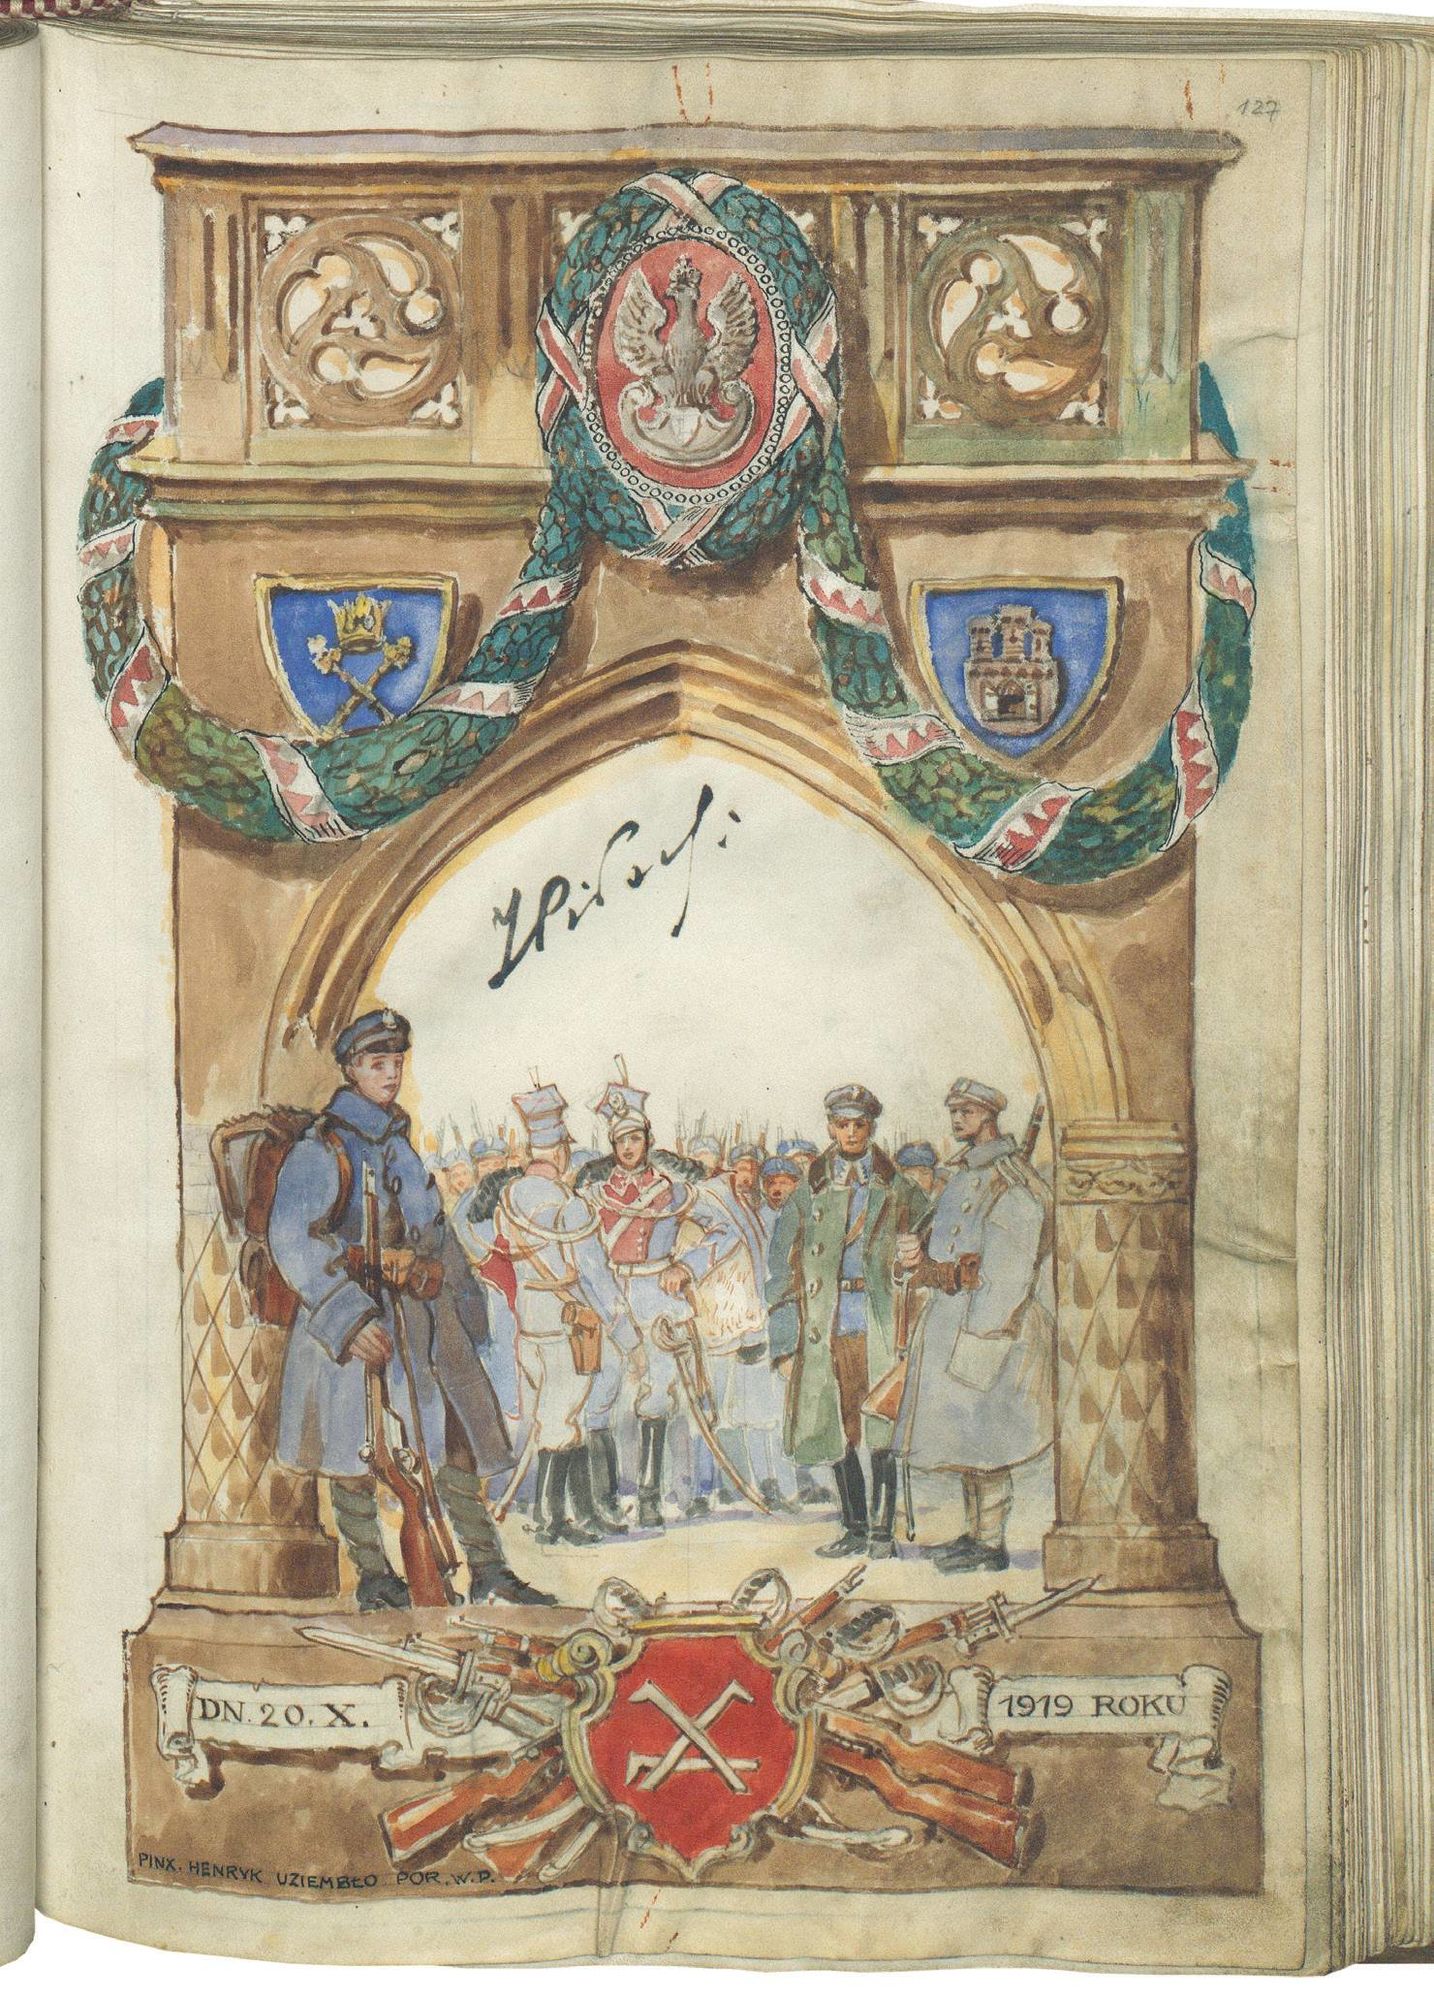 127
J Piłsudski
DN. 20. X.
1919 ROKU
PINX. HENRYK UZIEMBŁO POR. W.P.